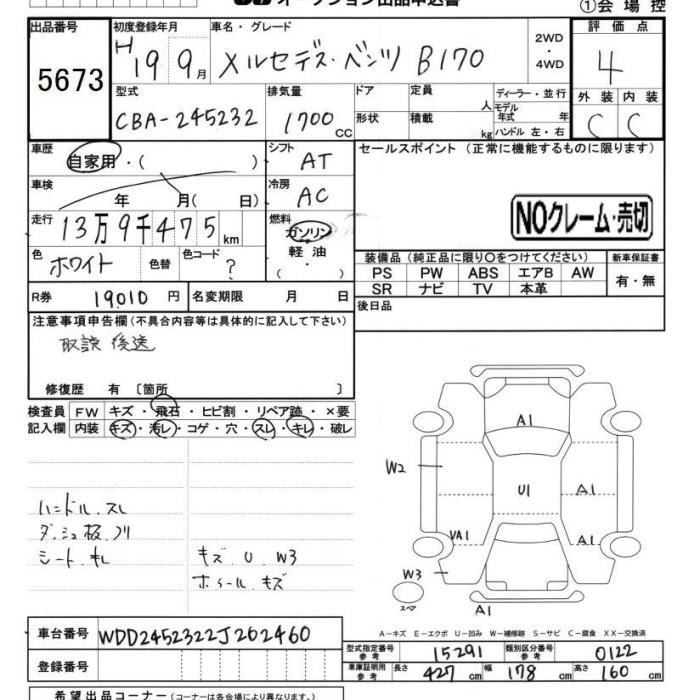 オークション出品申込書
①会場控
出品番号
5673
初度登録年月
H19 9月
車名・グレード
メルセデス・ベンツ B170
2WD
・
4WD
評価点
4
型式
CBA-245232
排気量
1700 cc
ドア
形状
定員
人
積載
kg
ディーラー・並行
モデル
年式 年
ハンドル 左・右
外装 内装
C C
車歴
自家用・( )
シフト
AT
車検
年 月( 日)
冷房
AC
走行
13万9千475 km
燃料
ガソリン
軽油
( )
色
ホワイト
色替
色コード
?
R券 19,010 円
名変期限 月 日
セールスポイント (正常に機能するものに限ります)
NOクレーム・売切
装備品 (純正品に限り○をつけてください)
新車保証書
PS PW ABS エアB AW
SR ナビ TV 本革
有・無
後日品
注意事項申告欄 (不具合内容等は具体的に記入して下さい)
取説 後送
修復歴 有 〔箇所 〕
検査員
記入欄
FW キズ・飛石・ヒビ割・リペア跡・×要
内装 キズ・汚レ・コゲ・穴・スレ・キレ・破レ
ハンドル.スレ
ダッシュ板.
シート.キレ
キズ U W3
ホイール.キズ
A1
W2
U1
A1
VA1
A1
W3
スペア
A1
A-キズ E-エクボ U-凹み W-補修跡 S-サビ C-腐食 XX-交換済
車台番号 WDD2452322J262460
登録番号
型式指定番号
参考
15291
類別区分番号
参考
0122
車庫証明用
参考
長さ 427 cm 幅 178 cm 高さ 160 cm
希望出品コーナー (コーナーは各会場により異なります。)